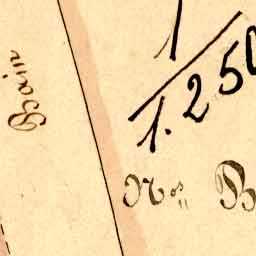 Bain
1
1.250
Nos B